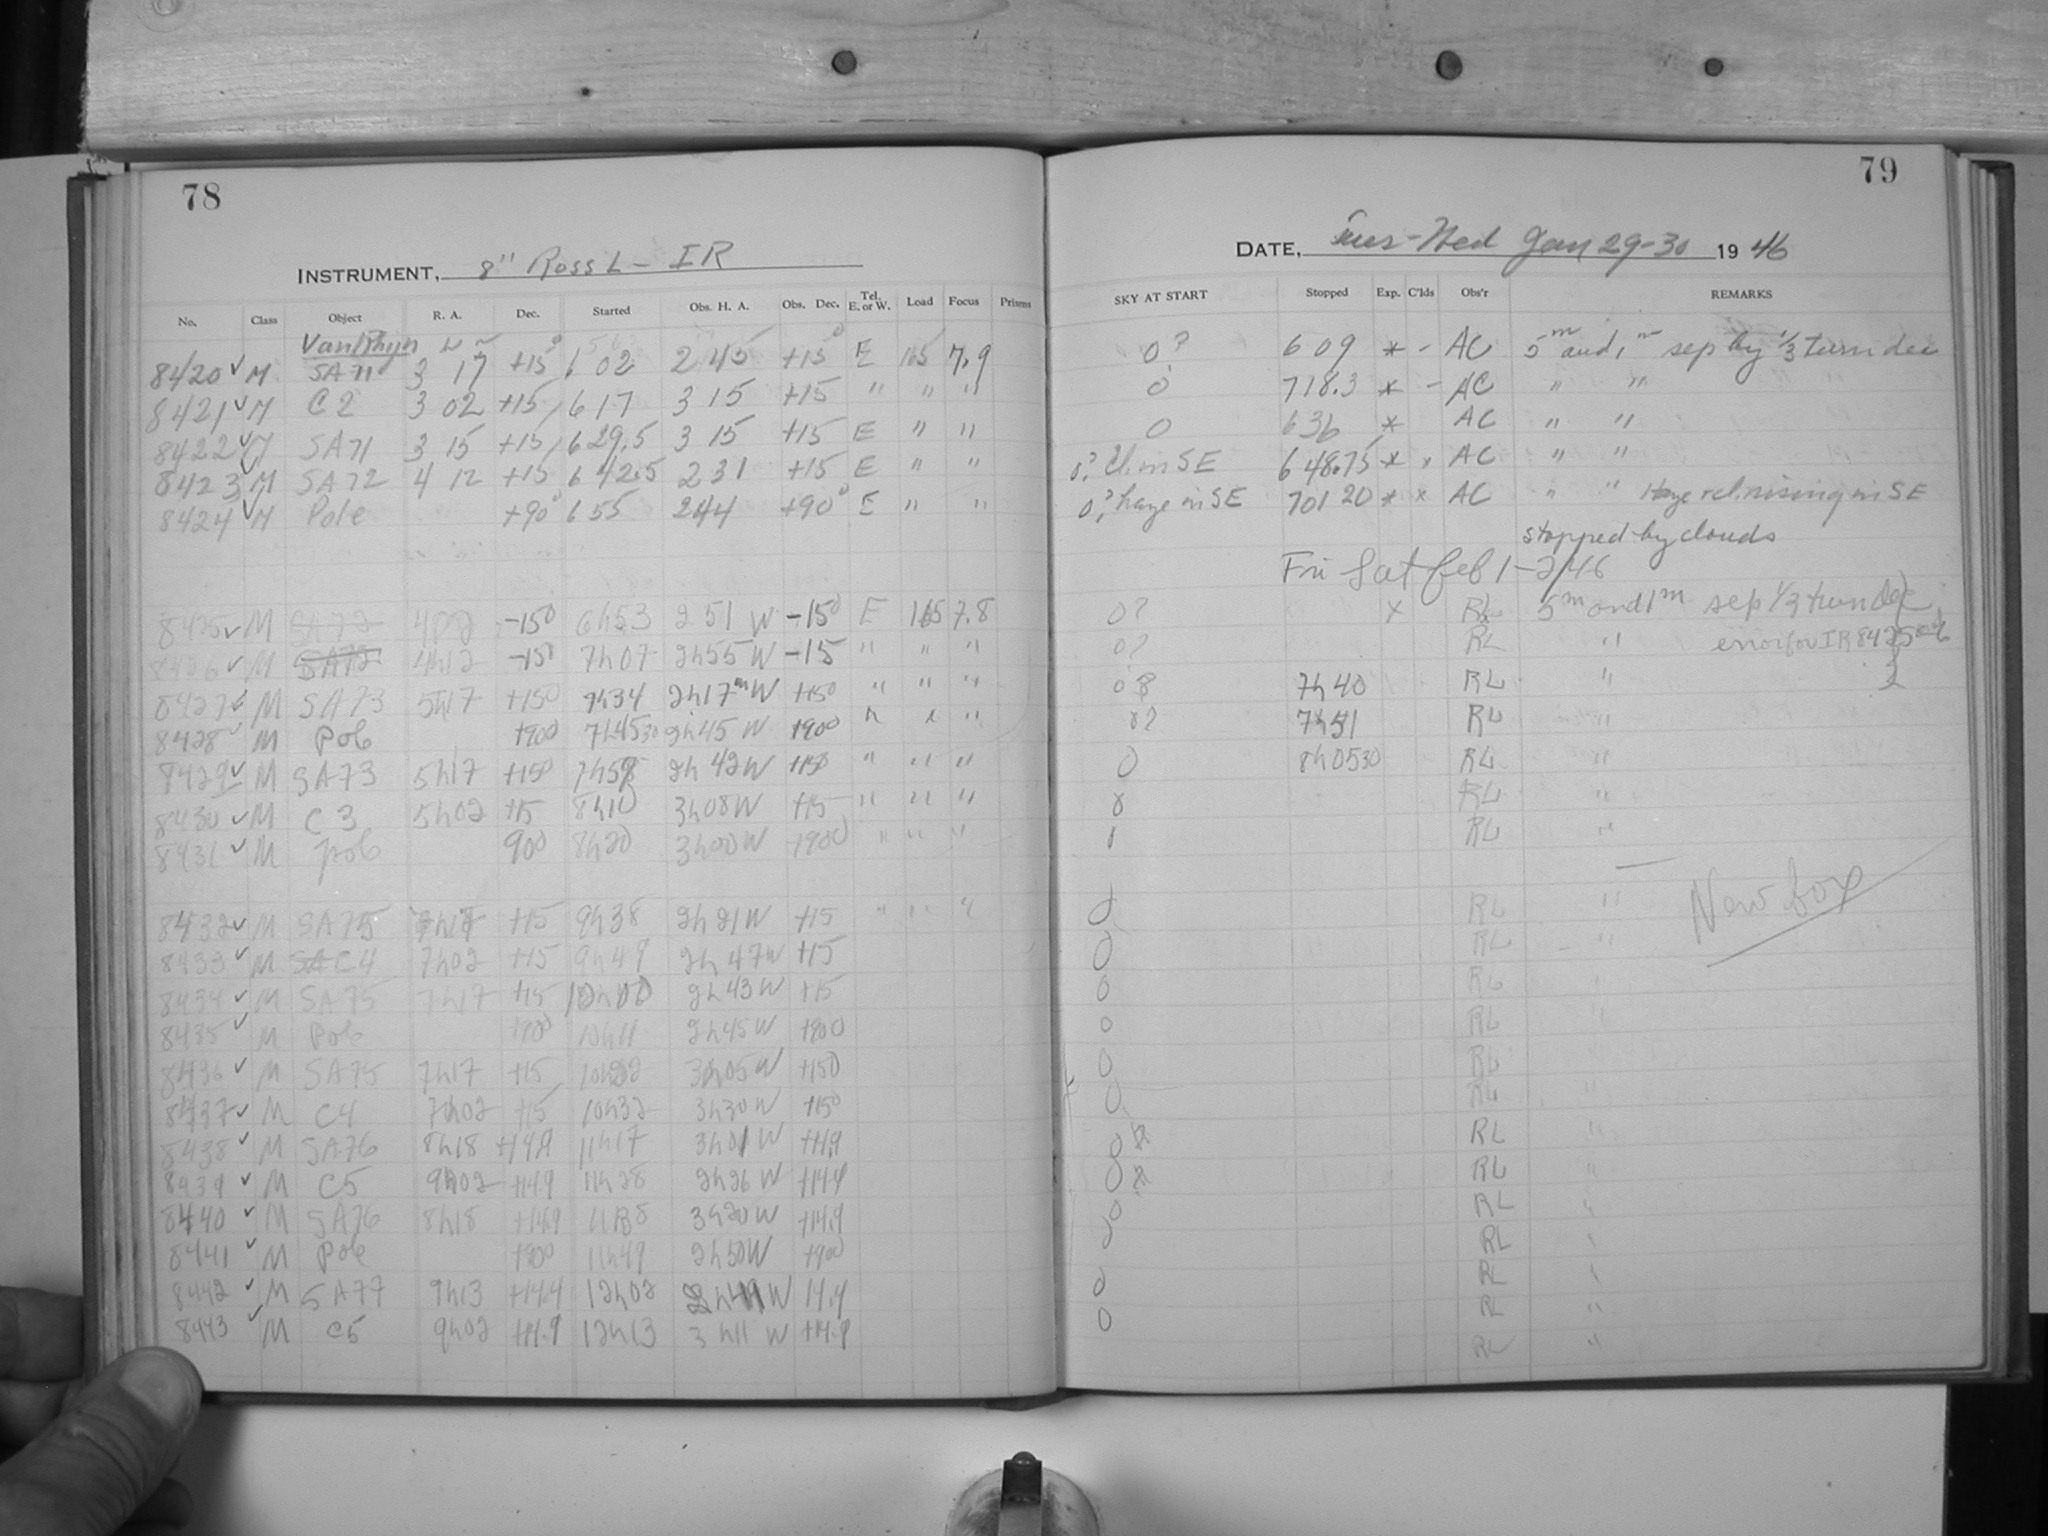 78
INSTRUMENT, 8" Ross L - IR
No. Class Object R. A. Dec. Started Obs. H. A. Obs. Dec. Tel. E. or W. Load Focus Prisms
Van Rhyn
8420 ✓ M SA 71 3 17 +15° 6 02 2 45 +15° E 165 7.9
8421 ✓ M C 2 3 02 +15 617 3 15 +15 " " "
8422 ✓ M SA71 3 15 +15 629.5 3 15 +15 E " "
8423 ✓ M SA72 4 12 +15 642.5 2 31 +15 E " "
8424 ✓ M Pole +90° 655 244 +90° E " "
8425 ✓ M SA72 -150 6h53 2 51 W -150 E 165 7.8
8426 ✓ M SA72 4h12 -150 7h07 2h55 W -15 " " "
8427 ✓ M SA73 5h17 +150 2h17m W +150 " " "
8428 ✓ M Pole +900 7h4530 2h45 W +900 " " "
8429 ✓ M SA73 5h17 +150 2h 42W +150 " " "
8430 ✓ M C 3 5h02 +15 8h10 3h08W +15 " " "
8431 ✓ M pole 900 8h20 3h00W +900 " " "
8432 ✓ M SA75 7h17 +15 9h38 2h21W +15 " " "
8433 ✓ M SA C4 7h02 +15 9h49 2h 47W +15
8434 ✓ M SA75 7h17 +15 10h00 2h43W +15
8435 ✓ M Pole +900 10h11 2h45W +900
8436 ✓ M SA75 7h17 +15 10h22 3h05W +150
8437 ✓ M C4 7h02 +15 10h32 3h30W +150
8438 ✓ M SA76 8h18 +14.9 11h17 3h01 W +14.9
8439 ✓ M C5 9h02 +14.9 11h28 2h26 W +14.4
8440 ✓ M SA76 8h18 +14.9 3h20W +14.9
8441 ✓ M Pole +900 11h49 2h50W +900
8442 ✓ M SA77 9h13 +14.4 12h02 W 14.4
8443 ✓ M C5 9h02 +14.9 12h13 3h11 W +14.9
79
DATE, Tues-Wed Jan 29-30 1946
SKY AT START Stopped Exp. C'lds Obs'r REMARKS
0? 609 * - AC 5m and 1m sep by 1/3 turn dec
0 718.3 * - AC " "
0 636 * AC " "
0? Cl. in SE 648.75 * x AC " "
0? haze in SE 701 20 * x AC " " Haze rising in SE
stopped by clouds
Fri Sat Feb 1-2/46
0? x RL 5m and 1m sep 1/3 turn Dec
0? RL " error for IR 8425
0? 7h40 RL "
0? RL "
0 8h0530 RL "
0 RL "
RL "
New box
0 RL "
0 RL "
0 RL "
0 RL "
0 RL "
0 RL "
0 RL "
0 RL "
0 RL "
0 RL "
0 RL "
0 RL "
RL "